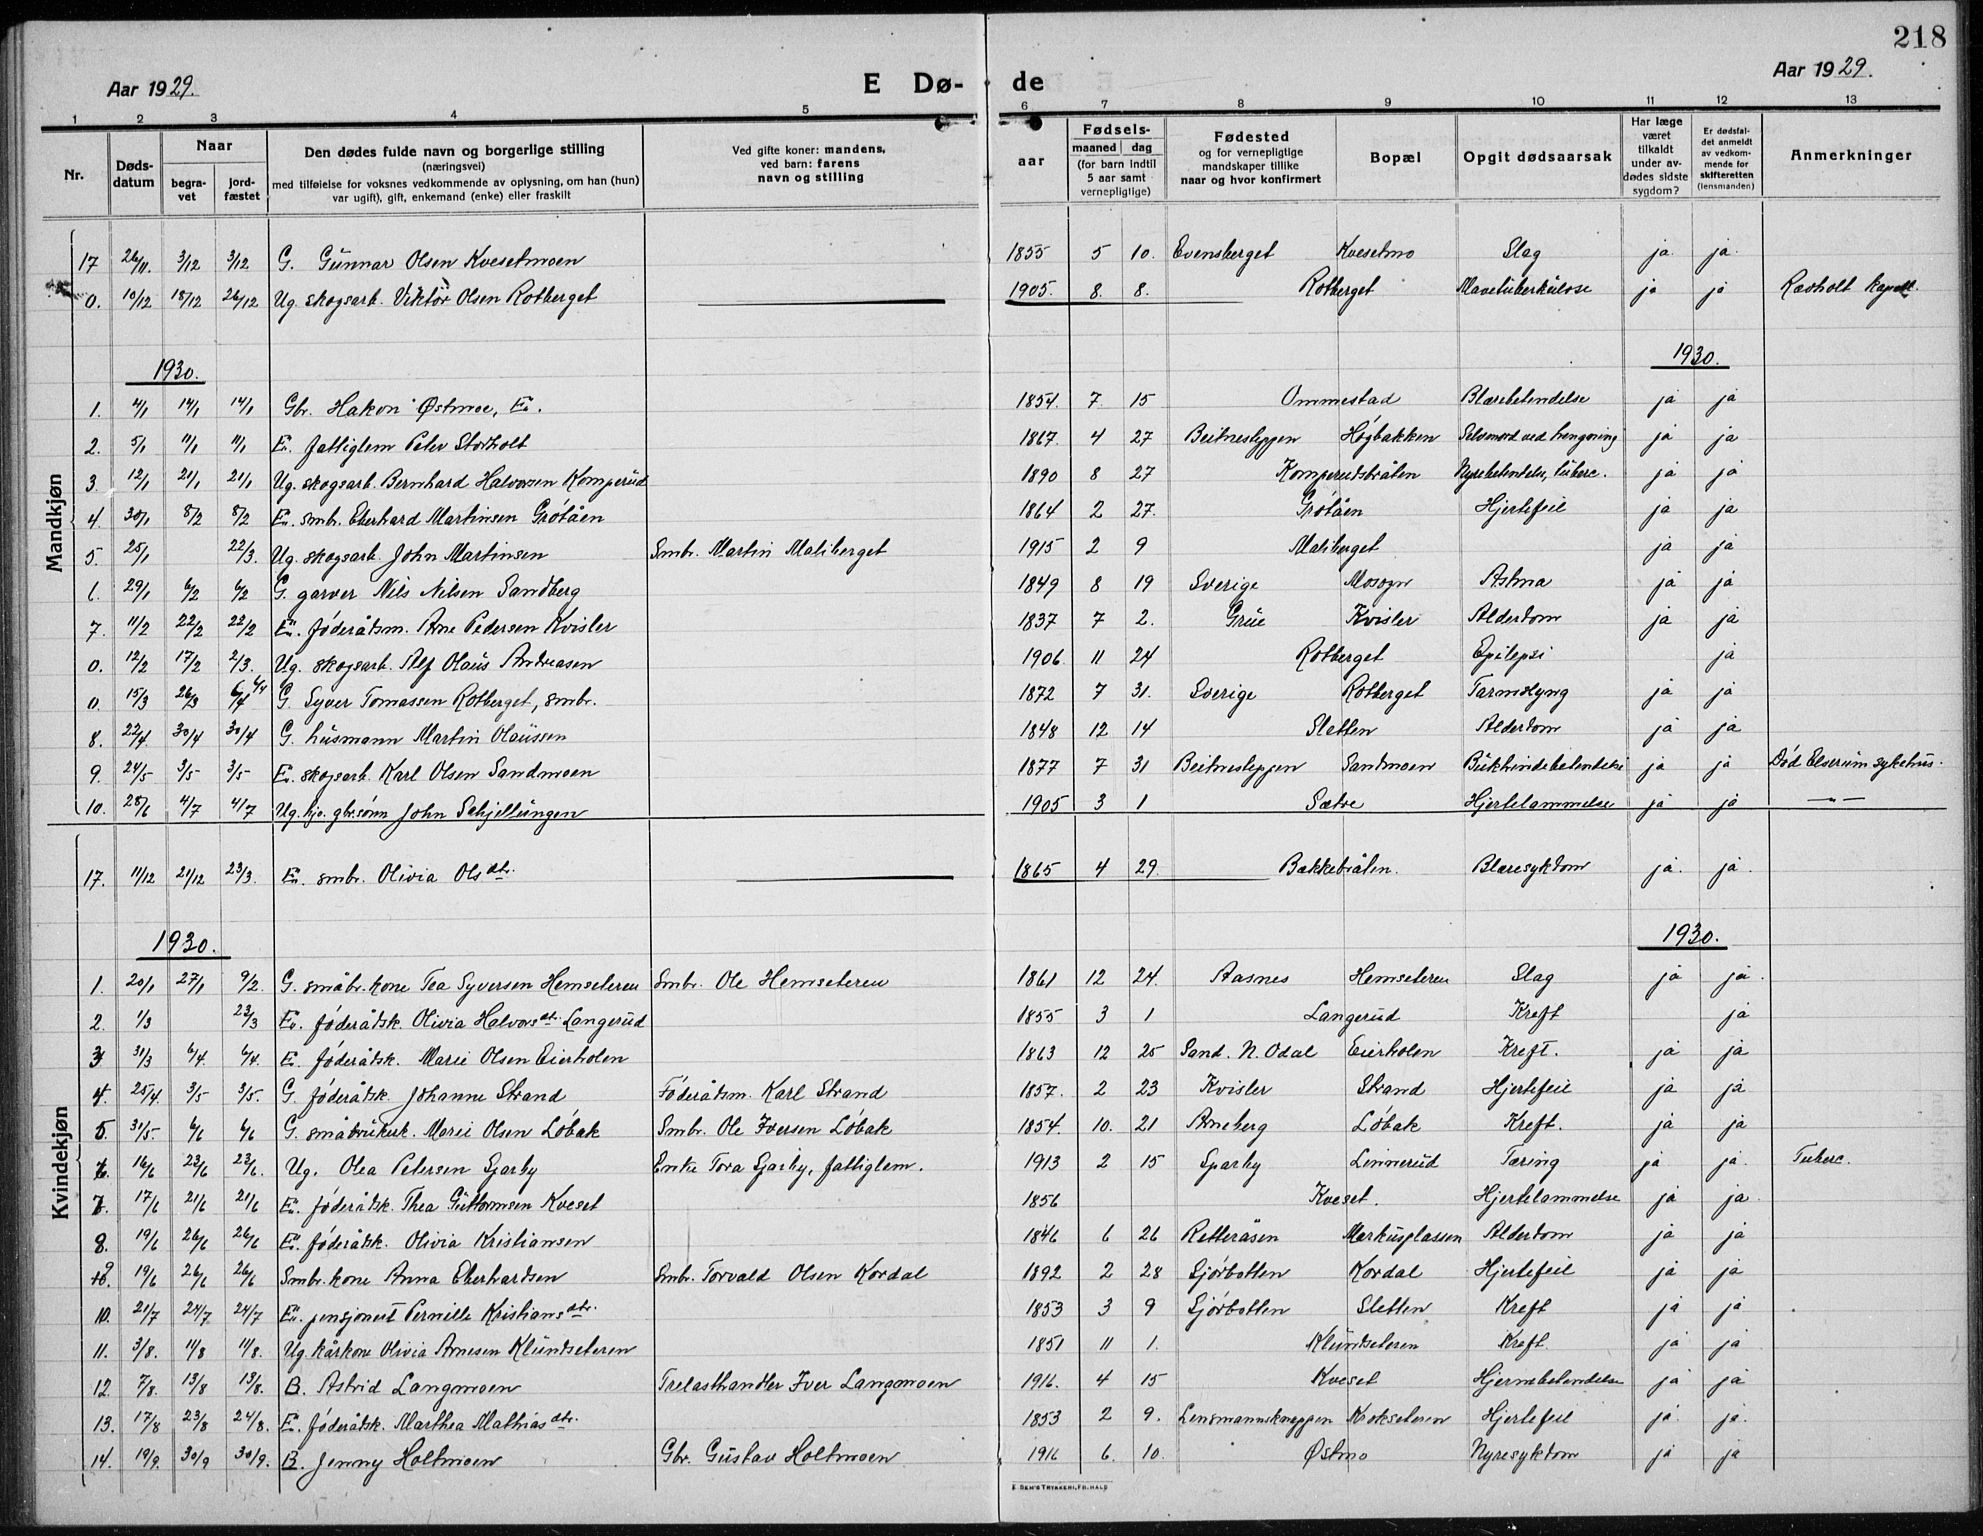 218
Aar 1929.
E Dø-
de
Aar 1929.
1 2 3 4 5 6 7 8 9 10 11 12 13
Nr.
Døds-
datum
Naar
begra-
vet
jord-
fæstet
Den dødes fulde navn og borgerlige stilling
(næringsvei)
med tilføielse for voksnes vedkommende av oplysning, om han (hun)
var ugift), gift, enkemand (enke) eller fraskilt
Ved gifte koner: mandens,
ved barn: farens
navn og stilling
aar
Fødsels-
maaned dag
(for barn indtil
5 aar samt
vernepligtige)
Fødested
og for vernepligtige
mandskaper tillike
naar og hvor konfirmert
Bopæl
Opgit dødsaarsak
Har læge
været
tilkaldt
under av-
dødes sidste
sygdom?
Er dødsfal-
det anmeldt
av vedkom-
mende for
skifteretten
(lensmanden)
Anmerkninger
Mandkjøn
17 26/11. 3/12 3/12 G. Gunnar Olsen Kvesetmoen 1855 5 10. Evensberget Kvesetmo Slag ja ja
0. 10/12 18/12 26/12 Ug. skogsarb. Viktor Olsen Rotberget 1905. 8. 8. Rotberget Mavetuberkulose ja ja Ravholt kapell.
1930. 1930.
1. 4/1 14/1 14/1 Gbr. Hakon Østmoe, E. 1854. 7. 15 Ommestad Blærebetendelse ja ja
2. 5/1 11/1 11/1 E. fattiglem Peter Storholt 1867. 4 27 Beitnesleppen Høgbakken Selvmord ved hengning ja ja
3. 12/1 21/1 21/1 Ug. skogsarb. Bernhard Halvorsen Komperud 1890 8 27 Komperudsbråten Nyrebetendelse, tuberc. ja ja
4. 30/1 8/2 8/2 E. smbr. Eberhard Martinsen Grøtåen 1864 2 27. Grøtåen Hjertefeil ja ja
5. 25/1 22/3. Ug. skogsarb. John Martinsen Smbr. Martin Maliberget 1915 2 9 Maliberget ja ja
6. 29/1 6/2 6/2 G. garver Nils Nilsen Sandberg 1849 8 19 Sverige Mosogn Astma ja ja
7. 11/2 22/2 22/2 E. føderåtsm. Arne Pedersen Kvisler 1837 7 2. Grue Kvisler Alderdom ja ja
0. 12/2 17/2 2/3. Ug. skogsarb. Alf Olaus Andreasen 1906. 11 24 Rotberget Epilepsi ja
0. 15/3 26/3 6/4 6/4 G Syver Tomassen Rotberget, smbr. 1872 7 31. Sverige Rotberget Tarmslyng ja ja
8. 22/4. 30/4 30/4 G. husmann Martin Olaussen 1848 12 14 Sletten Alderdom ja ja
9. 24/5 3/5 3/5 E. skogsarb. Karl Olsen Sandmoen 1877 7 31 Beitnesleppen Sandmoen Bukhindebetendelse ja ja Død Elverum sykehus.
10. 28/6 4/7 4/7 Ug. hjv. gbr.sønn John Schjellungen 1905 3 1 Sætre Hjertelammelse ja ja —"—
Kvindekjøn
17. 11/12 21/12 23/3. E. smbr. Olivia Olsdtr. 1865 4 29. Bakkebråten. Blæresykdom ja. ja.
1930. 1930.
1. 20/1 27/1 9/2. G. småbr.kone Tea Syversen Hemseteren Smbr. Ole Hemseteren 1861 12 24. Aasnes Hemseteren Slag ja ja.
2. 1/3 23/3 E. føderåtsk. Olivia Halvorsdtr. Langerud 1855 3 1 Langerud Kreft ja
3 31/3 6/4. 6/4. E. føderåtsk. Marie Olsen Eierholen 1863 12 25 Sand. N. Odal Eierholen Kreft. ja ja
4. 25/4. 3/5. 3/5. G. føderåtsk. Johanne Strand Føderåtsm. Karl Strand 1857. 2 23 Kvisler Strand Hjertefeil ja ja
5. 31/5. 6/6 6/6 G. småbrukersk. Marie Olsen Løbak Smbr. Ole Iversen Løbak 1854. 10. 21 Arneberg Løbak Kreft. ja ja
6. 16/6 23/6 23/6. Ug. Olea Petersen Sparby Enke Tora Sparby, fattiglem. 1913 2 15 Sparby Linnerud Tæring ja ja. Tuberc.
7. 17/6 21/6 21/6 E. føderåtsk. Thea Guttormsen Kveset 1856 Kveset. Hjertelammelse ja ja
8. 19/6 26/6 26/6 E. føderåtsk. Olivia Kristiansen 1846 6 26 Retteråsen Markusplassen Alderdom ja ja
9. 19/6 26/6 26/6 Smbr.kone Anna Eberhardsen Smbr. Torvald Olsen Kordal 1892 2 28 Sjørbotten Kordal Hjertefeil ja ja
10. 21/7 24/7 24/7 E. pensjonert Pernille Kristiansdtr. 1853 3 9 Sjørbotten Sletten Kreft ja ja
11. 3/8. 11/8 11/8. Ug. kårkone Olivia Arnesen Klundseteren 1851 11 1. Klundseteren Kreft. ja ja
12. 7/8. 13/8 13/8. B. Astrid Langmoen Trelasthandler Iver Langmoen 1916. 4 15 Kveset Hjernebetendelse ja ja
13. 17/8 23/8 24/8. E. føderåtsk. Marthea Mathiasdtr. 1853 2 9. Lensmannsknappen Krokseteren Hjertefeil ja ja.
14. 19/9. 30/9 30/9. B. Jenny Holtmoen Gbr. Gustav Holtmoen 1916 6. 10. Østmo Nyresykdom ja ja
E. SEM'S TRYKKERI, FR.HALD